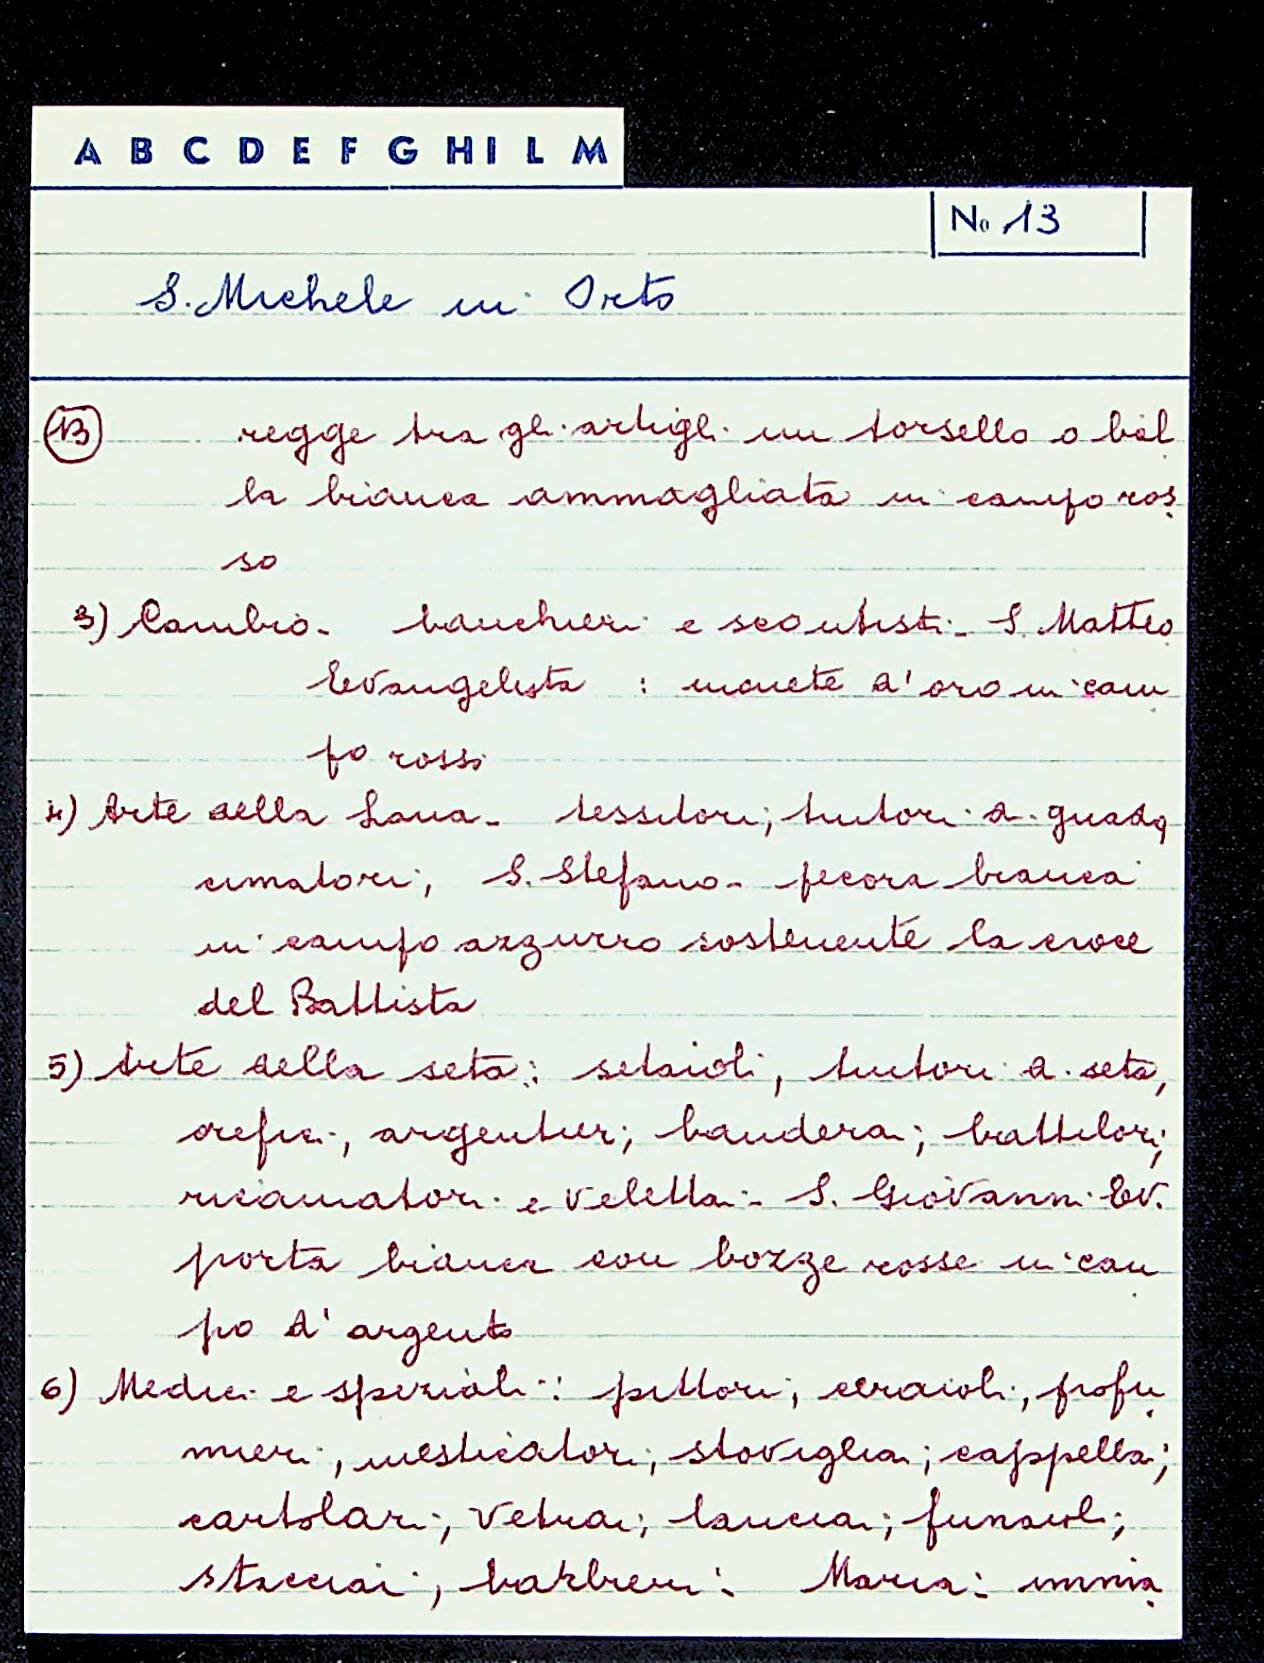 A B C D E F G H I L M
No 13
S. Michele in Orto
13 regge tra gli artigli un torsello o bal
la bianca ammagliata in campo ros
so
3) Cambio - banchieri e scontisti - S. Matteo
Evangelista : monete d'oro in cam
po rosso
4) Arte della Lana - tessitori; tintori di guado,
cimatori; S. Stefano - pecora bianca
in campo azzurro sostenente la croce
del Battista
5) Arte della seta: setaioli, tintori di seta,
orefici, argentieri; banderai; battilori;
ricamatori e velettai - S. Giovanni Ev.
porta bianca con bozze rosse in cam
po d'argento
6) Medici e speziali: pittori; ceraioli, profu
mieri, mesticatori; stovigliai; cappellai;
cartolari; vetrai; lanciai; funaioli;
stacciai, barbieri: Maria: